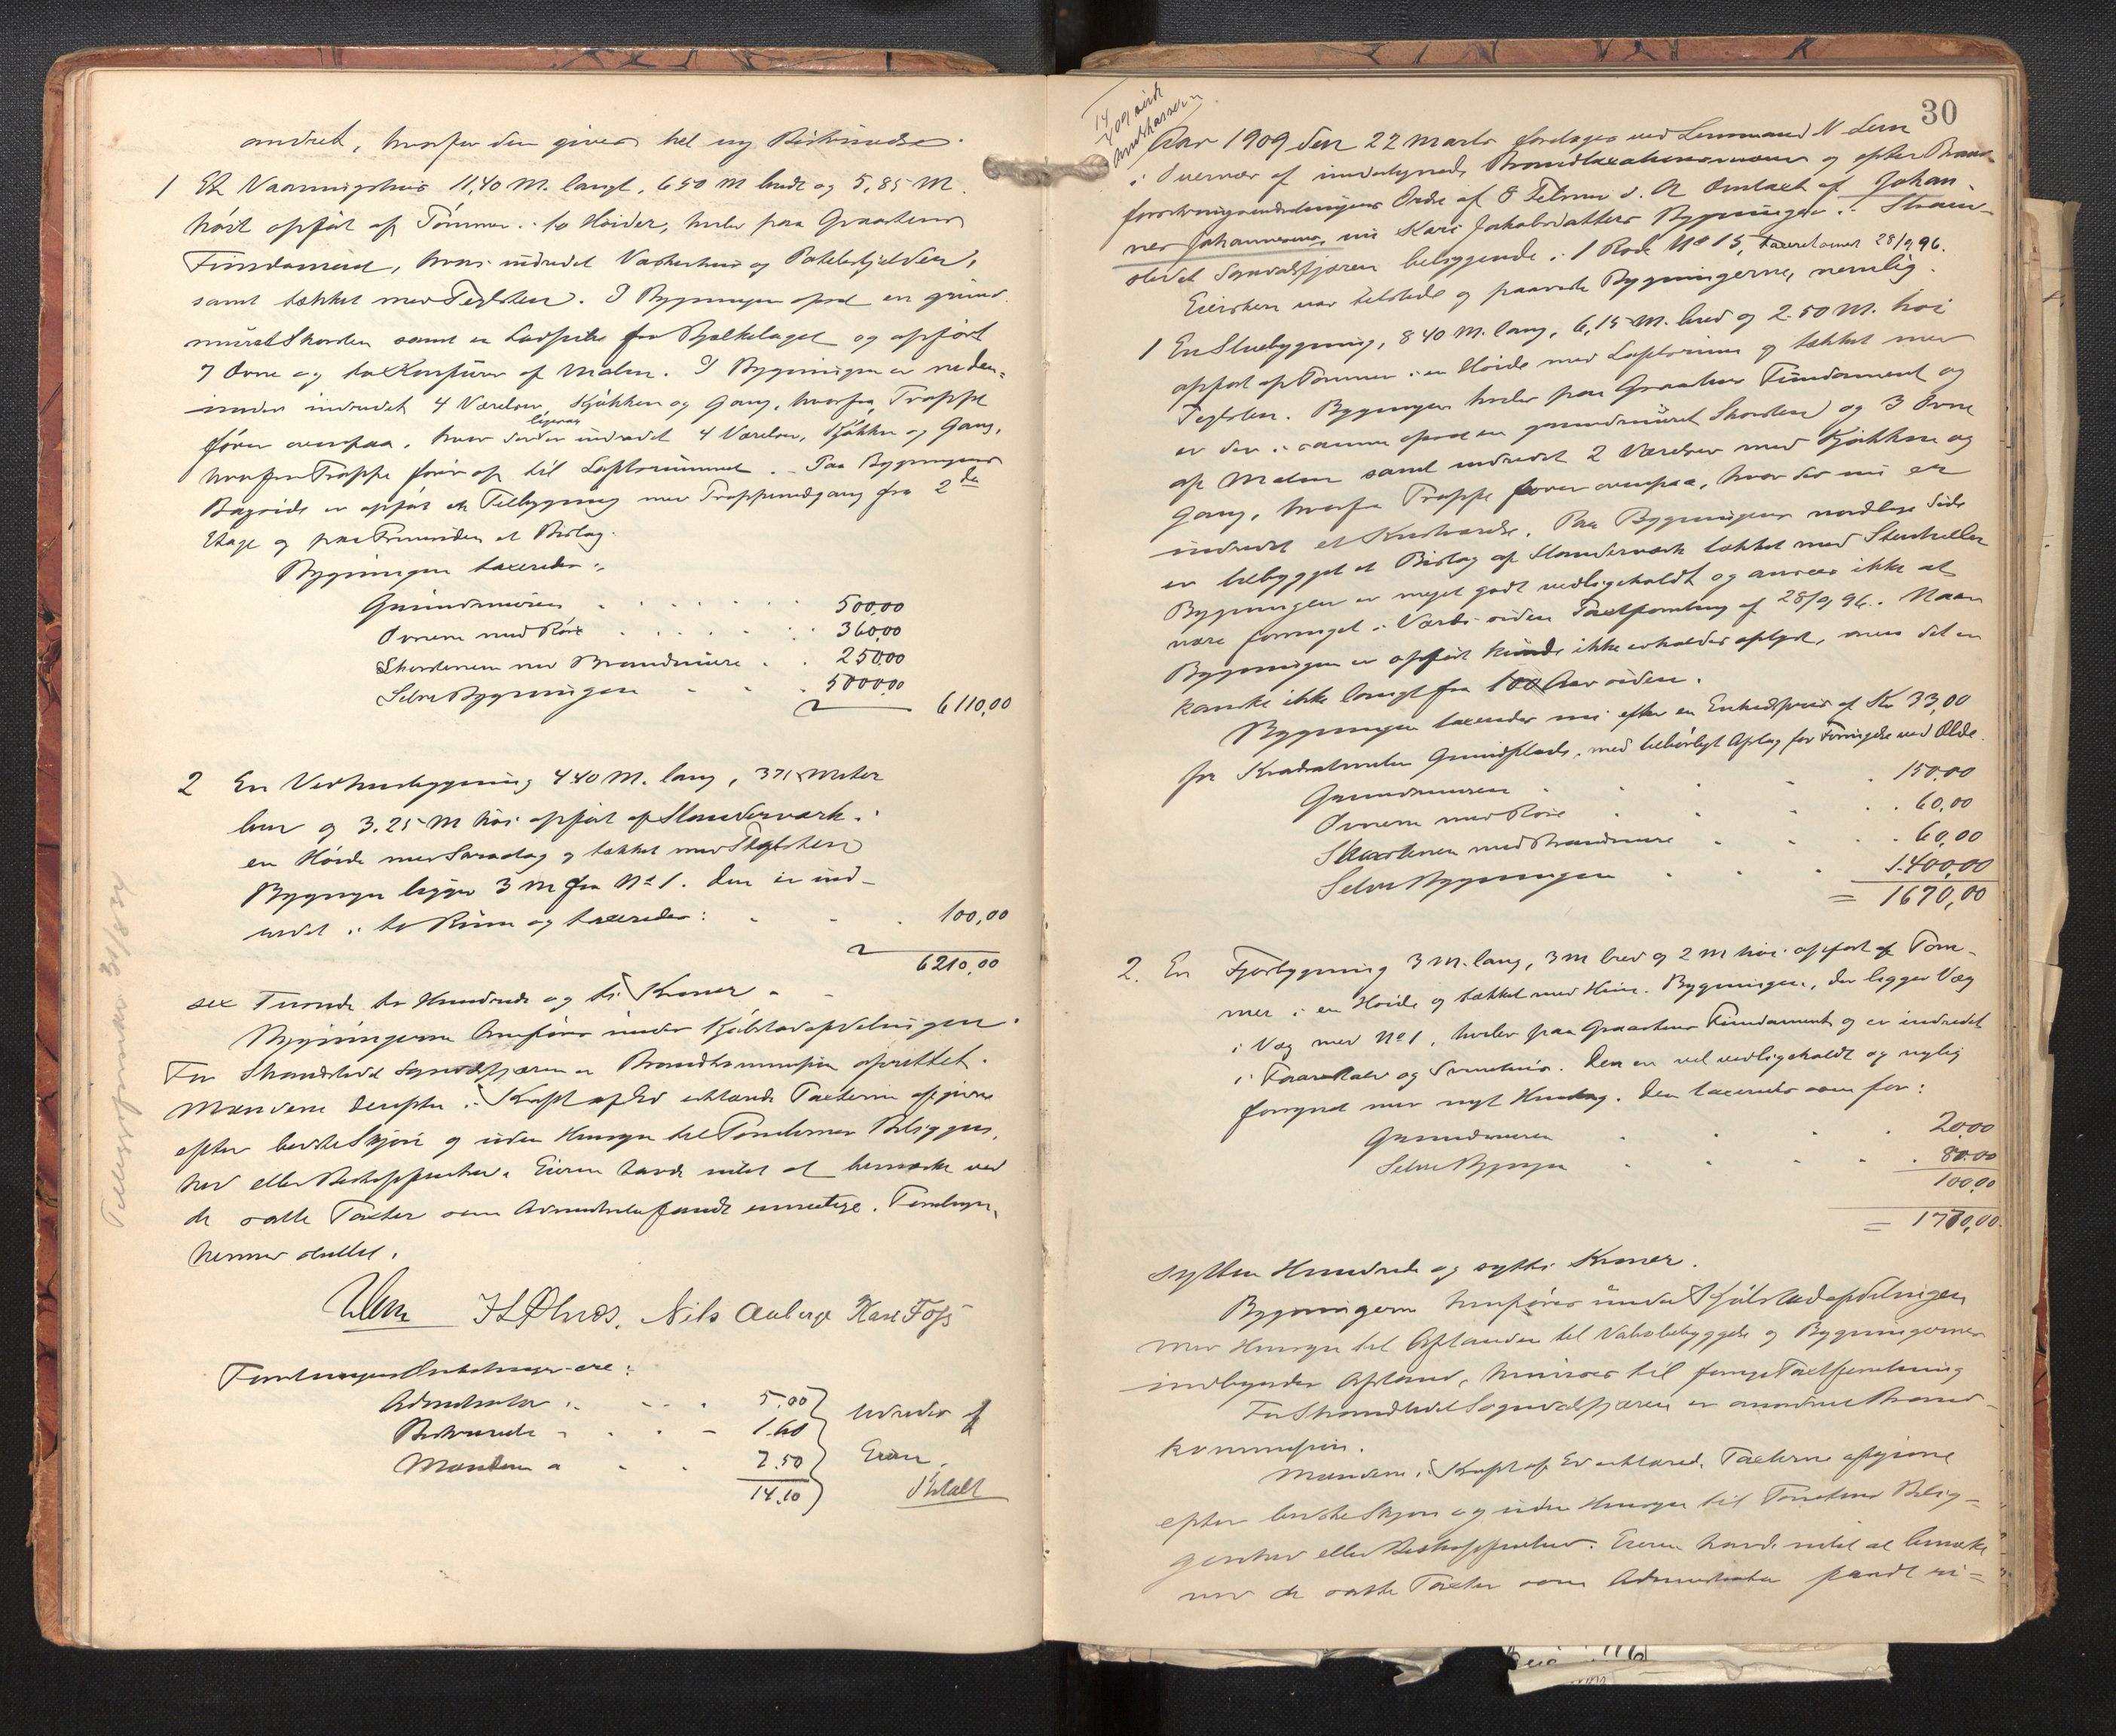 andret, hvorfor den gives hel ny Beskrivelse.
1 Et Vaaningshus 11,40 M. langt, 6.50 M bredt og 5,85 M.
høit opført af Tømmer i to Høider, hviler paa Graastens
Fundament, hvori indredet Vaskerhus og Potetkjelder,
samt tækket med Teglsten. I Bygningen opsat en grund
muret Skorsten samt en Ladpibe fra Bjælkelaget og opført
7 Ovne og to Komfurer af Malm. I Bygningen er neden-
under indredet 4 Værelser, Kjøkken og Gang, hvorfra Trappe
fører ovenpaa, hvor der er ligesaa indredet 4 Værelser, Kjøkken og Gang,
hvorfra Trappe fører op til Loftsrummet. Paa Bygningens
Bagside er opført en Tilbygning med Trappenedgang fra 2de
Etage og paa Fremsiden et Bislag.
Bygningen taxeredes:
Grundmuren 500,00
Ovnene med Rør 360,00
Skorstenen med Brandmure 250,00
Selve Bygningen 5000,00
6110,00
2 En Vedhusbygning 4.40 M. lang, 3.71 Meter
bred og 3.25 M høi opført af Stenderværk i
en Høide med Skraatag og tækket med Teglsten
Bygningen ligger 3 M fra No 1. Den er ind-
redet i to Rum og taxeredes: 100,00
6210,00
sex Tusinde to Hundrede og ti Kroner
Bygningerne henføres under Kjøbstadafdelingen.
For Strandstedet Sogndalsfjæren er Brandkommission oprettet.
Mændene derefter i Kraft af Ed erklærede Taxterne afgivne
efter bedste Skjøn og uden Hensyn til Tomternes Beliggen-
hed eller Beskaffenhed. Eieren havde intet at bemærke ved
de satte Taxter som Administrator fandt rimelige. Forretnin-
hermed sluttet.
NLem HLØlnes. Nils Aaberge Karl Foss
Forretningens Omkostninger ere:
Administrator 5.00
Beskrivelse 1.60
Mændene 7.50
14.10
udredes af
Eieren.
Betalt
Tillægsforr. 31/8 24
30
Aar 1909 den 22 Marts foretoges ved Lensmand N Lem
i Overvær af undertegnede Brandtaxationsmænd og efter Brand-
forsikringsindretningens Ordre af 8 Februar d. A Omtaxt af Johan-
nes Johannessens nu Kari Jakobsdatters Bygninger i Strand-
stedet Sogndalsfjæren beliggende i 1 Rode No 15, taxeret den 28/9 96.
Eiersken var tilstede og paaviste Bygningerne, nemlig.
1 En Stuebygning, 8.40 M. lang, 6,15 M. bred og 2.50 M. høi
opført af Tømmer i en Høide med Loftsrum og tækket med
Teglsten. Bygningen hviler paa Graastens Fundament og
er der i samme opsat en grundmuret Skorsten og 3 Ovne
af Malm samt indredet 2 Værelser med Kjøkken og
Gang, hvorfra Trappe fører ovenpaa, hvor der nu er
indredet et Kvistværelse. Paa Bygningens nordlige Side
er tilbygget et Bislag af Stenderværk tækket med Stenheller
Bygningen er meget godt vedligeholdt og ansees ikke at
være forringet i Værdi siden Taxtforretning af 28/9 96. Naar
Bygningen er opført kunde ikke erholdes oplyst, men det er
kanske ikke langt fra 100 Aar siden.
Bygningen taxeredes nu efter en Enhedspris af Kr 33,00
for Kvadratmeter Grundflade, med behørligt Afslag for Forringelse ved Ælde.
Grundmuren 150.00
Ovnene med Rør 60,00
Skorstenen med Brandmure 60,00
Selve Bygningen 1.400,00
= 1670,00
2. En Fjøsbygning 3 M. lang, 3 M bred og 2 M høi opført af Tøm-
mer i en Høide og tækket med Heller. Bygningen, der ligger Væg
i Væg med No 1, hviler paa Graastens Fundament og er indredet
i Faarestald og Svinehus. Den er vel vedligeholdt og nylig
forsynet med nyt Hustag. Den taxeredes som før:
Grundmuren 20,00
Selve Bygningen 80.00
100,00
= 1770,00.
sytten Hundrede og sytti Kroner.
Bygningerne henføres under Kjøbstadafdelingen
Med Hensyn til Afstanden til Nabobebyggelse og Bygningernes
indbyrdes Afstand, henvises til forrige Taxtforretning
For Strandstedet Sogndalsfjæren er anordnet Brand-
kommission.
Mændene i Kraft af Ed erklærede Taxterne afgivne
efter bedste Skjøn og uden Hensyn til Tomtens Belig-
genhed eller Beskaffenhed. Eieren havde intet at bemærke
ved de satte Taxter som Administrator fandt ri=